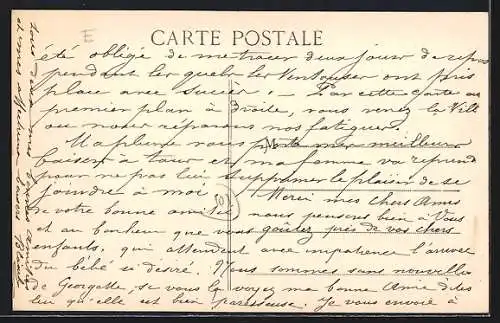 E
CARTE POSTALE
été obligé de me tracer deux jours de repos
pendant lesquels les Ventouses ont pris
place avec succès. — Par cette carte au
premier plan à Droite, vous verrez la Ville
ou nous réparons nos fatigues.
Ma plume vous porte mes meilleurs
baisers à tous et ma femme va reprendre
pour ne pas lui supprimer le plaisir de se
joindre à moi.
Merci mes chers Amis
de votre bonne amitié
nous pensons bien à Vous
et au bonheur que vous goûtez près de vos chers
enfants, qui attendent avec impatience l'arrivée
du bébé si désiré. Nous sommes sans nouvelles
de Georgette, si vous la voyez ma bonne Amie dites
lui qu'elle est bien paresseuse. Je vous envoie à
tous deux nos bons
et vous affectueux baisers